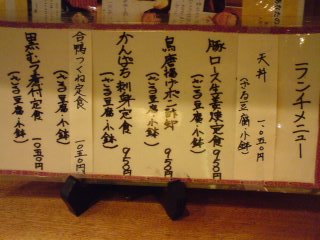 ランチメニュー
天丼 一、〇五〇円
(ざる豆腐、小鉢)
豚ロース生姜焼定食 950円
(ざる豆腐、小鉢)
鳥唐揚げポン酢 950円
(ざる豆腐、小鉢)
かんぱち刺身定食 950円
(ざる豆腐、小鉢)
合鴨つくね定食 一〇五〇円
(ざる豆腐、小鉢)
黒むつ煮付定食 一〇五〇円
(ざる豆腐、小鉢)